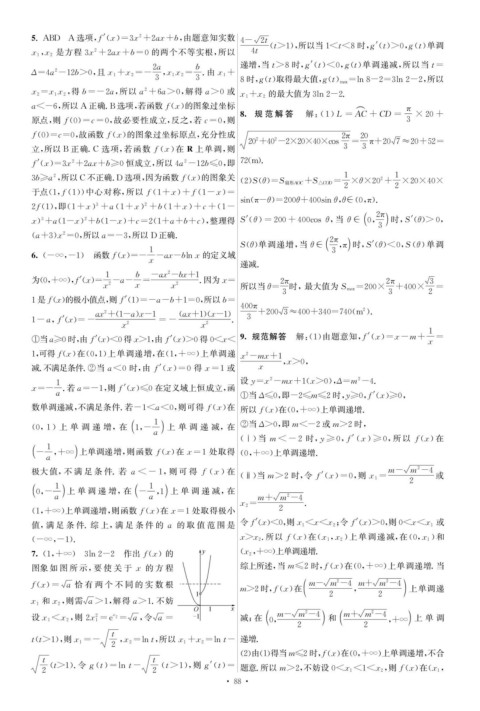 5. ABD A选项,f′(x)=3x²+2ax+b,由题意知实数
x₁,x₂ 是方程 3x²+2ax+b=0 的两个不等实根,所以
Δ=4a²-12b>0,且 x₁+x₂=-2a/3,x₁x₂=b/3. 由 x₁+
x₂=x₁x₂,得 b=-2a,所以 a²+6a>0,解得 a>0 或
a<-6,所以A正确. B选项,若函数 f(x)的图象过坐标
原点,则 f(0)=c=0,故必要性成立,反之,若 c=0,则
f(0)=c=0,故函数 f(x)的图象过坐标原点,充分性成
立,所以 B 正确. C 选项,若函数 f(x)在 R 上单调,则
f′(x)=3x²+2ax+b≥0 恒成立,所以 4a²-12b≤0,即
3b≥a²,所以C不正确. D选项,因为函数 f(x)的图象关
于点(1,f(1))中心对称,所以 f(1+x)+f(1-x)=
2f(1),即(1+x)³+a(1+x)²+b(1+x)+c+(1-
x)³+a(1-x)²+b(1-x)+c=2(1+a+b+c),整理得
(a+3)x²=0,所以 a=-3,所以D正确.
6. (-∞,-1) 函数 f(x)=-1/x-ax-bln x 的定义域
为(0,+∞),f′(x)=1/x²-a-b/x=(-ax²-bx+1)/x². 因为 x=
1是 f(x)的极小值点,则 f′(1)=-a-b+1=0,所以 b=
1-a,f′(x)=-(ax²+(1-a)x-1)/x²=-((ax+1)(x-1))/x².
①当a≥0时,由 f′(x)<0得 x>1,由 f′(x)>0得0<x<
1,可得 f(x)在(0,1)上单调递增,在(1,+∞)上单调递
减.不满足条件. ②当 a<0 时,由 f′(x)=0 得 x=1 或
x=-1/a. 若 a=-1,则 f′(x)≤0 在定义域上恒成立,函
数单调递减,不满足条件. 若-1<a<0,则可得 f(x)在
(0,1) 上单调递增,在(1,-1/a)上单调递减,在
(-1/a,+∞)上单调递增,则函数 f(x)在 x=1 处取得
极大值,不满足条件. 若 a<-1,则可得 f(x)在
(0,-1/a)上单调递减,在(-1/a,1)上单调递减,在
(1,+∞)上单调递增,则函数 f(x)在 x=1 处取得极小
值,满足条件. 综上,满足条件的 a 的取值范围是
(-∞,-1).
7. (1,+∞) 3ln 2-2 作出 f(x) 的
图象如图所示,要使关于 x 的方程
f(x)=√a 恰有两个不同的实数根
x₁ 和 x₂,则需√a>1,解得 a>1. 不妨
设 x₁<x₂,则 2x₁²=e^x₂=√a,令√a=
t(t>1),则 x₁=-√(t/2),x₂=ln t,所以 x₁+x₂=ln t-
√(t/2)(t>1). 令 g(t)=ln t-√(t/2)(t>1),则 g′(t)=
y
1
O 1 x
-1
(4-√2t)/4t(t>1),所以当 1<t<8 时,g′(t)>0,g(t)单调
递增,当 t>8时,g′(t)<0,g(t)单调递减,所以当 t=
8时,g(t)取得最大值,g(t)max=ln 8-2=3ln 2-2,所以
x₁+x₂ 的最大值为 3ln 2-2.
8. 规范解答 解:(1) L=AC+CD=π/3×20+
√(20²+40²-2×20×40×cos 2π/3)=20/3π+20√7≈20+52=
72(m).
(2)S(θ)=S扇形AOC+S△COD=1/2×θ×20²+1/2×20×40×
sin(π-θ)=200θ+400sin θ,θ∈(0,π).
S′(θ)=200+400cos θ,当 θ∈(0,2π/3)时,S′(θ)>0,
S(θ)单调递增,当 θ∈(2π/3,π)时,S′(θ)<0,S(θ)单调
递减.
所以当 θ=2π/3时,最大值为 Smax=200×2π/3+400×√3/2=
400π/3+200√3≈400+340=740(m²).
9. 规范解答 解:(1)由题意知,f′(x)=x-m+1/x=
(x²-mx+1)/x,x>0,
设 y=x²-mx+1(x>0),Δ=m²-4.
①当 Δ≤0,即-2≤m≤2 时,y≥0,f′(x)≥0,
所以 f(x)在(0,+∞)上单调递增.
②当 Δ>0,即 m<-2 或 m>2 时,
(ⅰ) 当 m<-2 时,y≥0,f′(x)≥0,所以 f(x)在
(0,+∞)上单调递增.
(ⅱ)当 m>2 时,令 f′(x)=0,则 x₁=(m-√(m²-4))/2 或
x₂=(m+√(m²-4))/2.
令 f′(x)<0,则 x₁<x<x₂;令 f′(x)>0,则 0<x<x₁ 或
x>x₂. 所以 f(x)在(x₁,x₂)上单调递减,在(0,x₁)和
(x₂,+∞)上单调递增.
综上所述,当 m≤2 时,f(x)在(0,+∞)上单调递增. 当
m>2时,f(x)在((m-√(m²-4))/2,(m+√(m²-4))/2)上单调递
减;在(0,(m-√(m²-4))/2)和((m+√(m²-4))/2,+∞)上单调
递增.
(2)由(1)得当 m≤2时,f(x)在(0,+∞)上单调递增,不合
题意. 所以 m>2,不妨设 0<x₁<1<x₂,则 f(x)在(x₁,
• 88 •